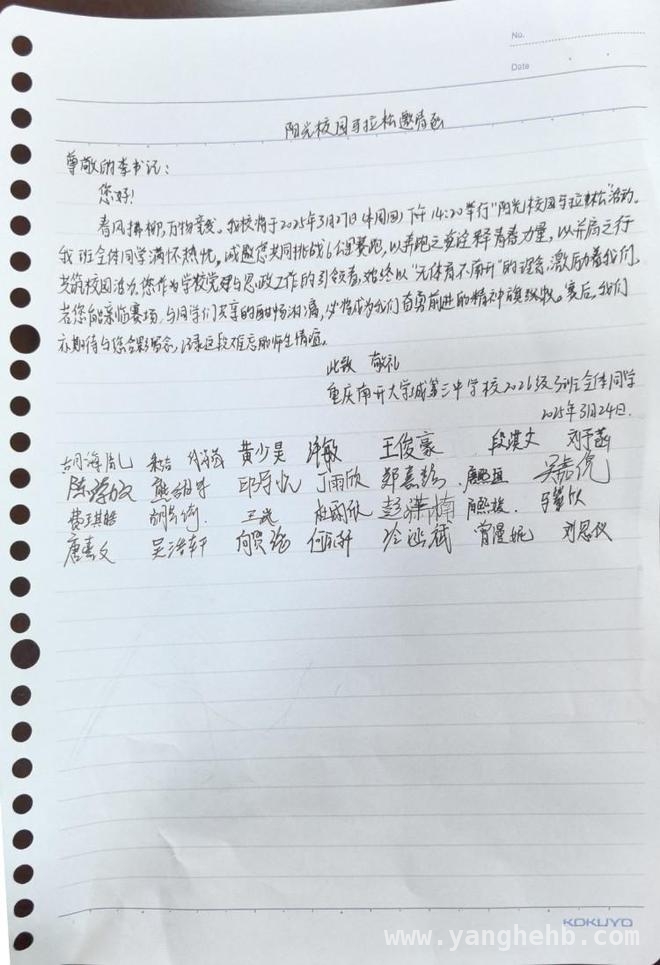 No.
Date
阳光校园马拉松邀请函
尊敬的李书记:
您好!
春风拂柳,万物竞发。我校将于2025年3月27日(本周四)下午14:20举行"阳光校园马拉松"活动。
我班全体同学满怀热忱,诚邀您共同挑战6公里赛跑,以奔跑之姿诠释青春力量,以并肩之行
共筑校园活力。您作为学校党建与思政工作的引领者,始终以"无体育不南开"的理念,激励着我们。
若您能亲临赛场,与同学们共享的酣畅淋漓,必将成为我们奋勇前进的精神旗帜。赛后,我们
亦期待与您合影留念,记录这段难忘的师生情谊。
此致 敬礼
重庆南开大学城第三中学校2026级3班全体同学
2025年3月24日.
黄少昊 许敏 王俊豪 段淇文 刘予菡
丁雨欣
彭洋楠
唐嘉文 吴浩轩 刘恩仪
KOKUYO
www.yanghehb.com